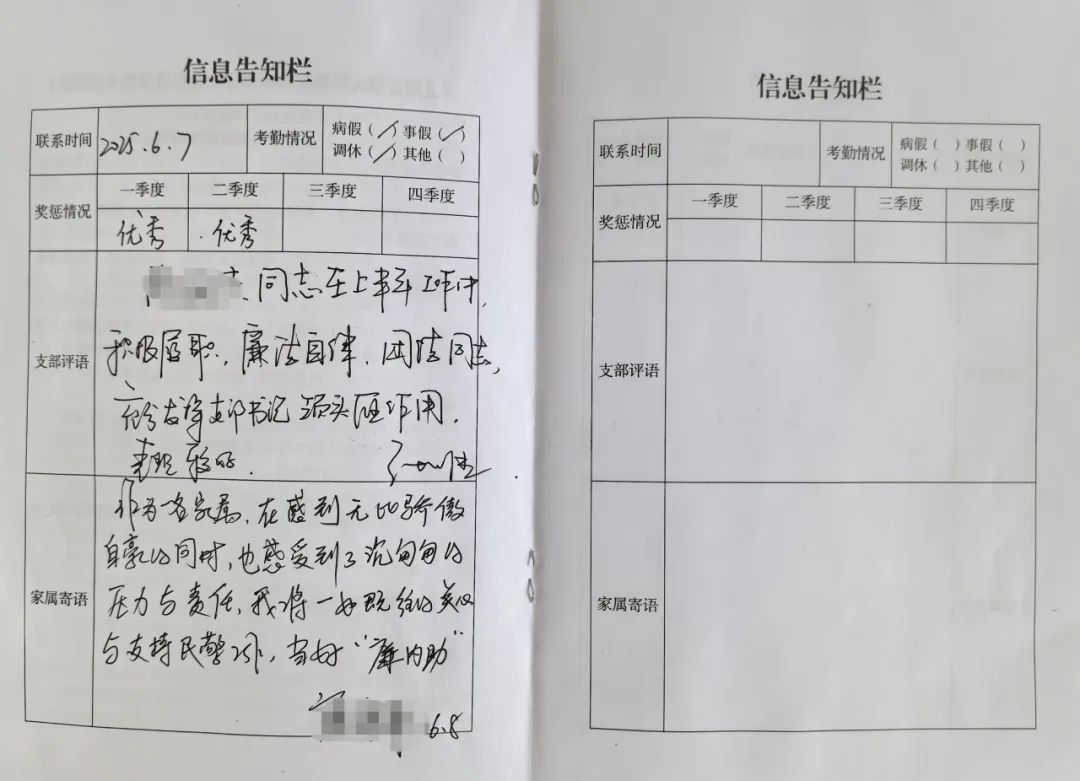 信息告知栏
联系时间 2025.6.7 考勤情况 病假（/）事假（/）
调休（/）其他（ ）
奖惩情况 一季度 二季度 三季度 四季度
优秀 优秀
支部评语
同志在上半年工作中，
积极履职，廉洁自律，团结同志，
充分发挥支部书记领头雁作用，
表现较好。
家属寄语
作为一名家属，在感到无比骄傲
自豪的同时，也感受到了沉甸甸的
压力与责任，我将一如既往的关心
与支持民警工作，当好“廉内助”
6.8
信息告知栏
联系时间 考勤情况 病假（ ）事假（ ）
调休（ ）其他（ ）
奖惩情况 一季度 二季度 三季度 四季度
支部评语
家属寄语